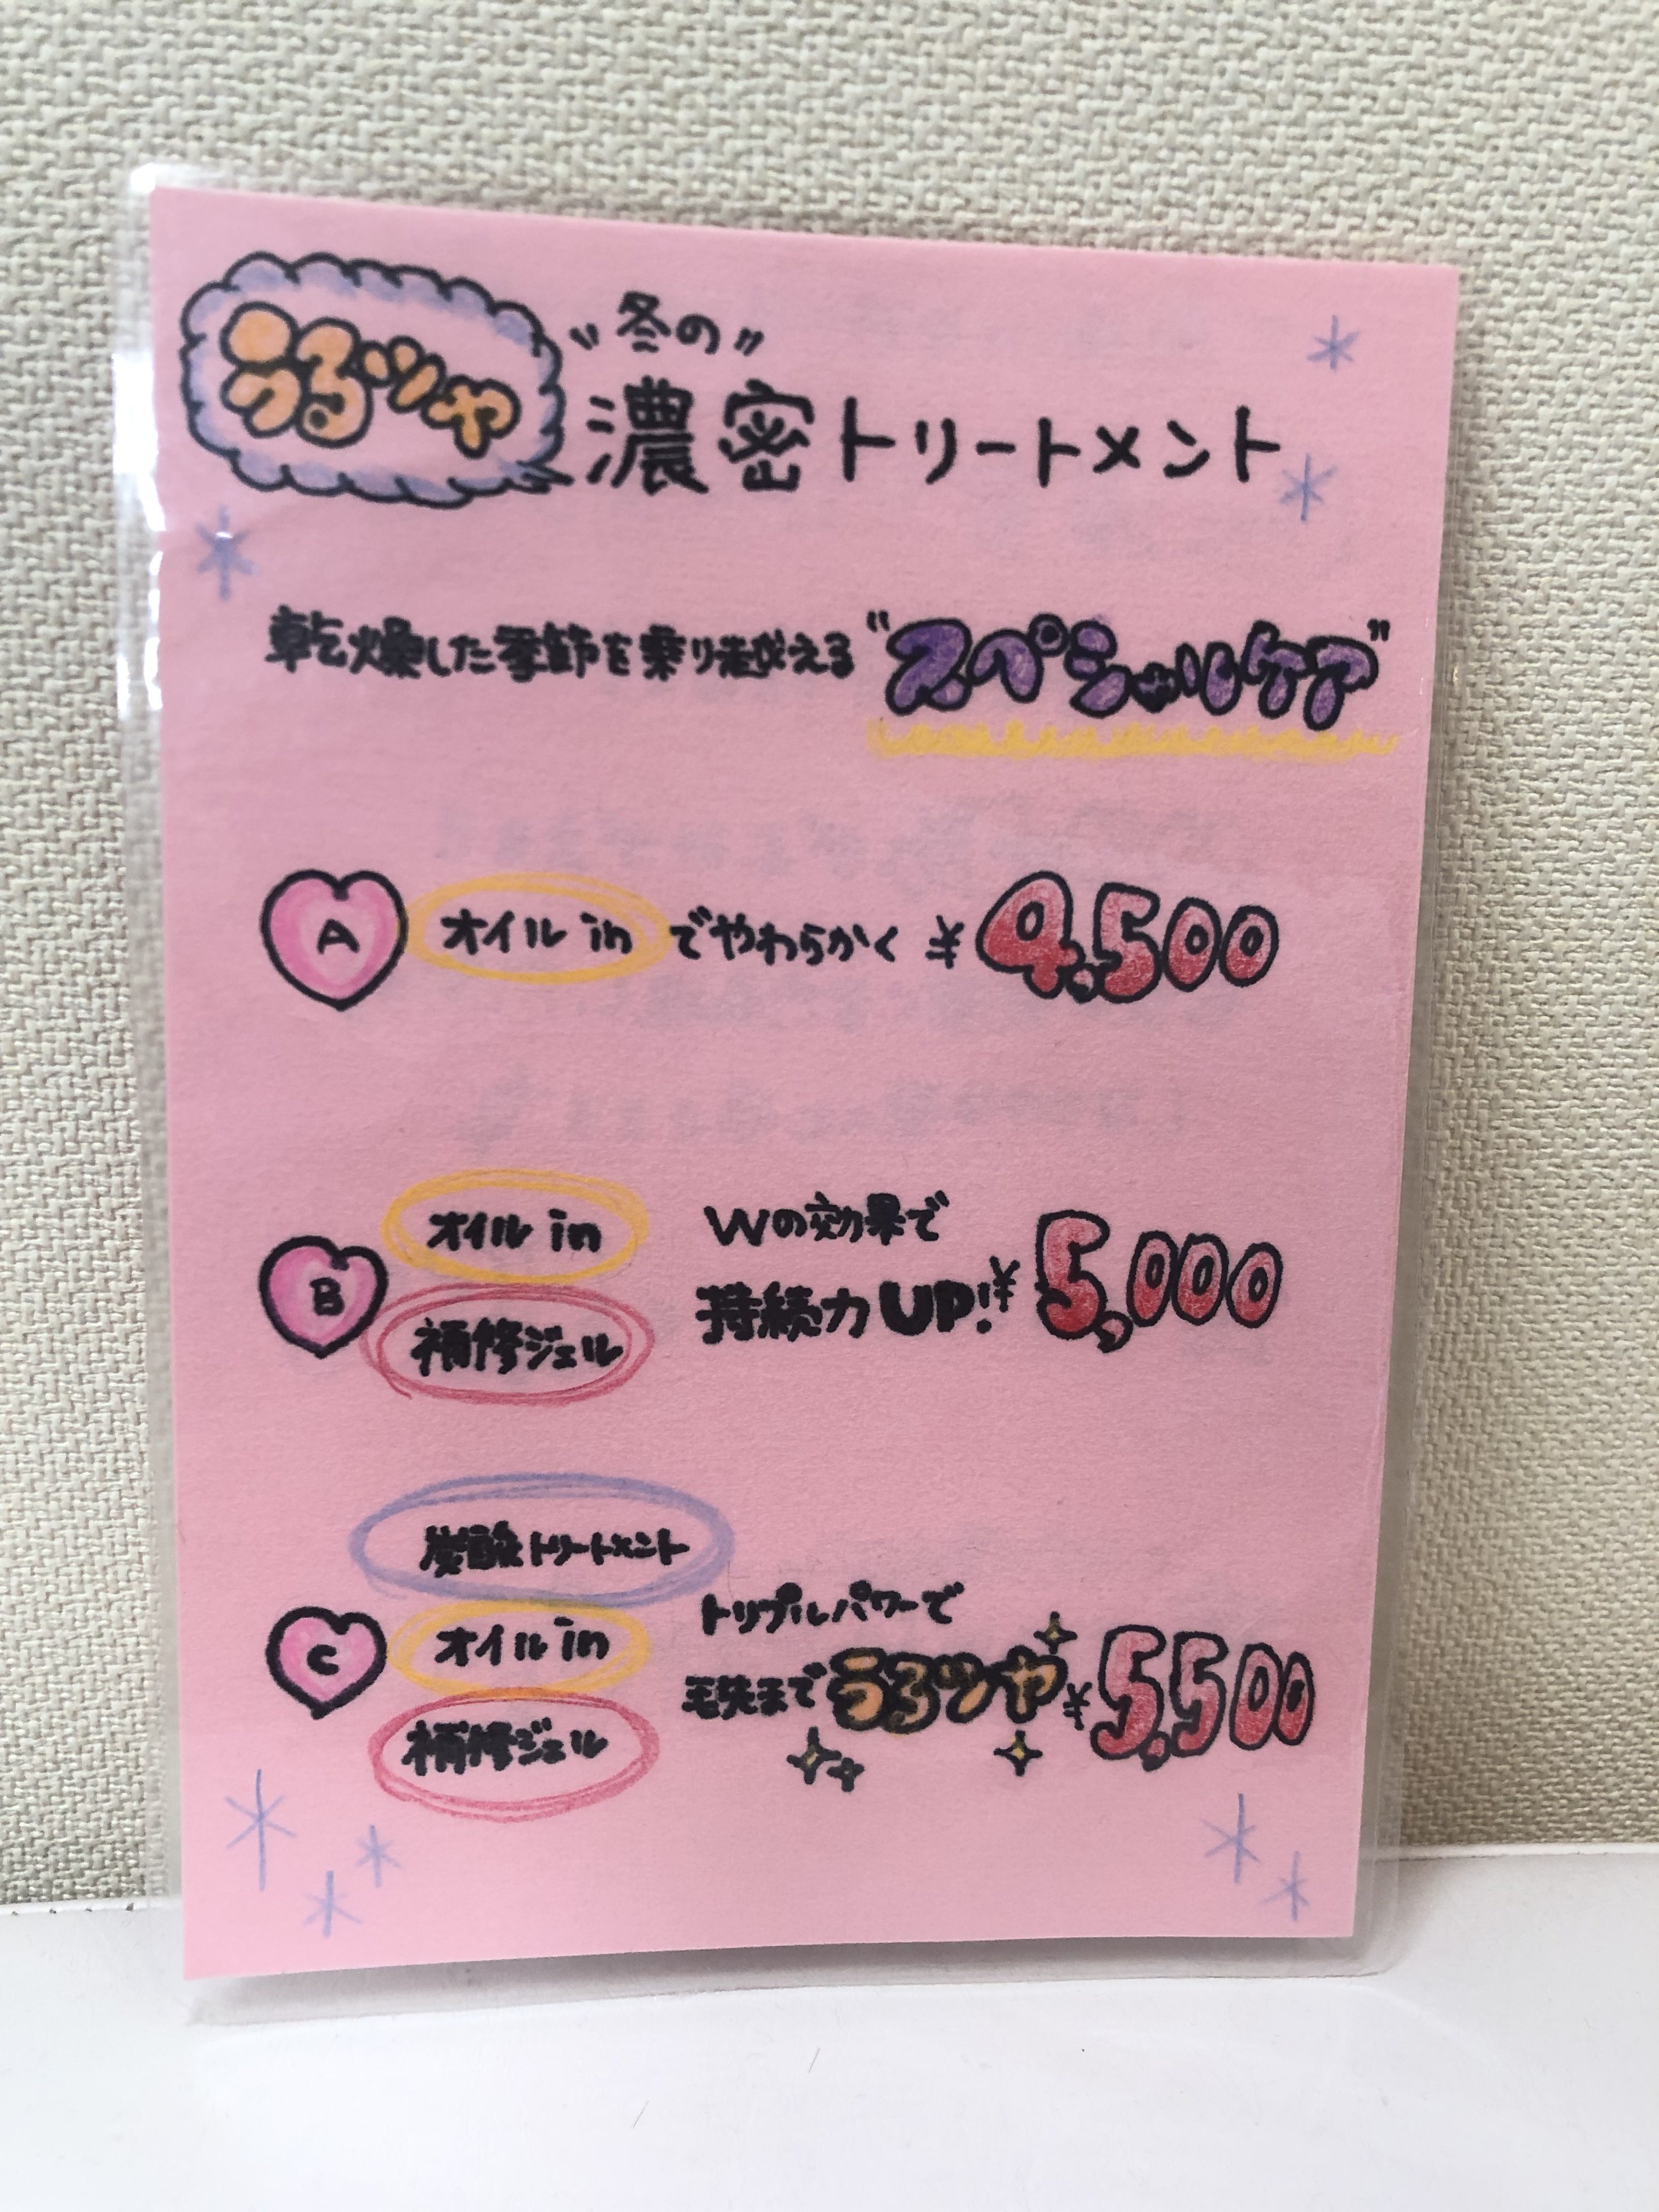 うるツヤ
"冬の"
濃密トリートメント
乾燥した季節を乗り越える"スペシャルケア"
A オイルin でやわらかく ¥4,500
B オイルin 補修ジェル Wの効果で
持続力UP! ¥5,000
炭酸トリートメント
C オイルin 補修ジェル トリプルパワーで
毛先まで うるツヤ ¥5,500